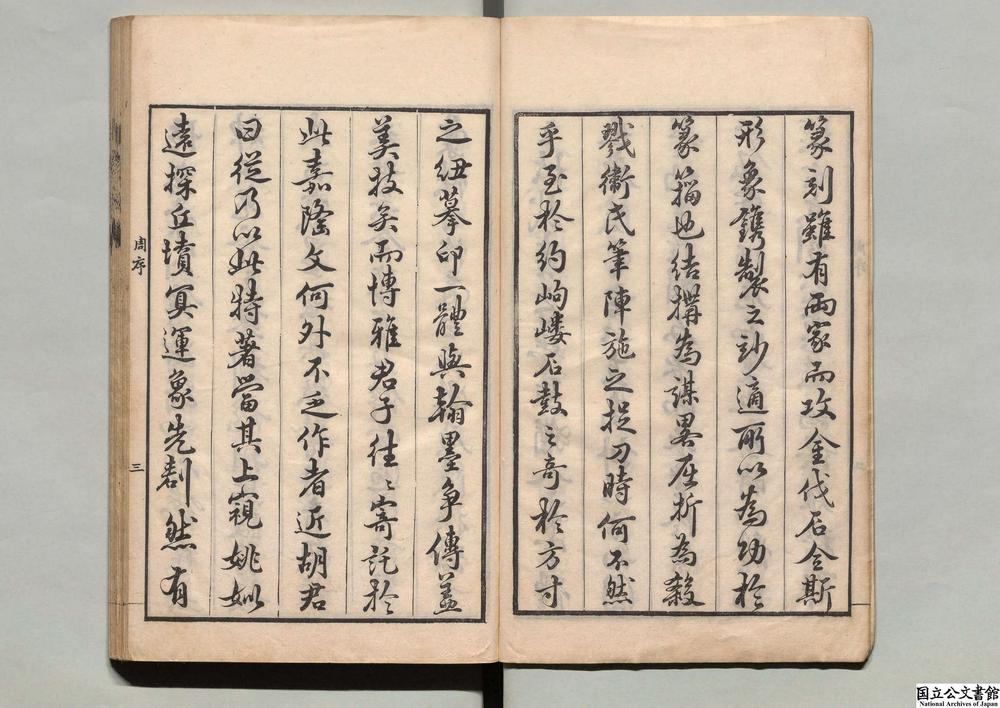 篆刻雖有兩家而攻金伐石令斯
形象鐫製之妙適所以為功於
篆籀也結構為謀畧屈折為殺
戮衞氏筆陣施之捉刀時何不然
乎至於約岣嶁石鼓之奇於方寸
之紐摹印一體與翰墨争傳葢
美技矣而博雅君子往〻寄託於
此嘉隆文何外不乏作者近胡君
曰從乃以此特著當其上窺姚姒
遠探丘墳冥運象先劃然有
周序
三
国立公文書館
National Archives of Japan